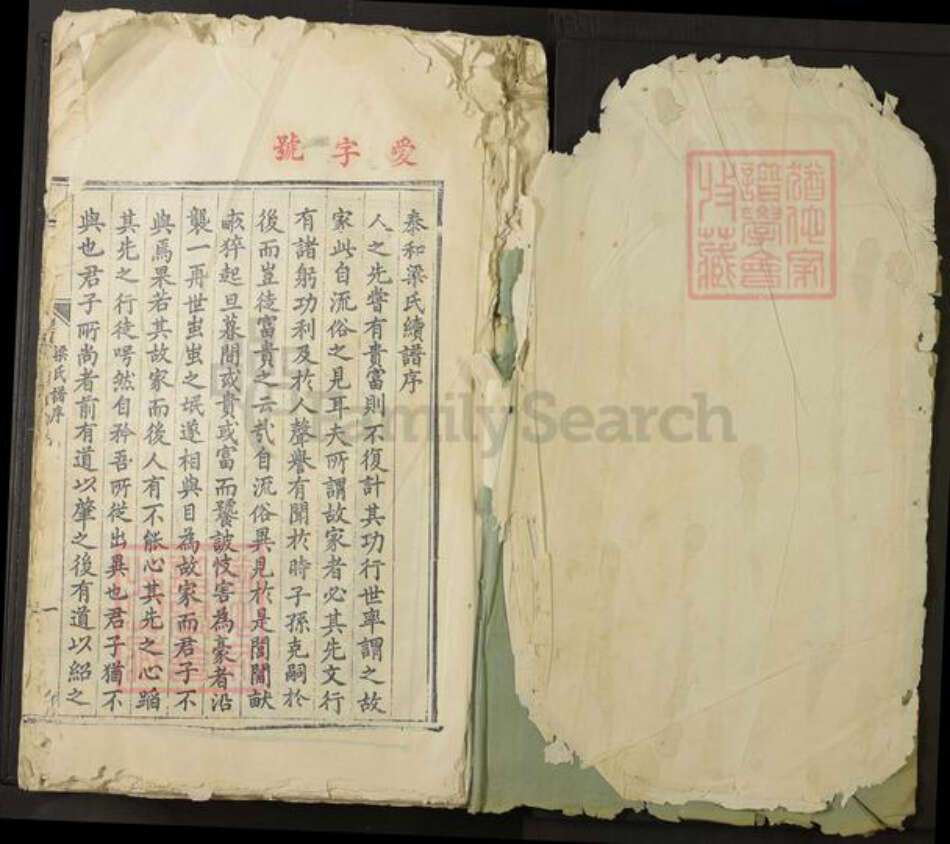 猶他家
譜學會
收藏
愛字號
泰和梁氏續譜序
人之先嘗有貴富則不復計其功行世率謂之故
家此自流俗之見耳夫所謂故家者必其先文行
有諸躬功利及於人聲譽有聞於時子孫克嗣於
後而豈徒富貴之云哉自流俗異見於是閭閻畎
畝猝起旦暮間或貴或富而饕詖忮害為豪者沿
襲一再世蚩蚩之氓遂相與目為故家而君子不
與焉果若其故家而後人有不能心其先之心蹈
其先之行徒咢然自矜吾所從出異也君子猶不
與也君子所尚者前有道以肇之後有道以紹之
梁氏譜序
一
FamilySearch